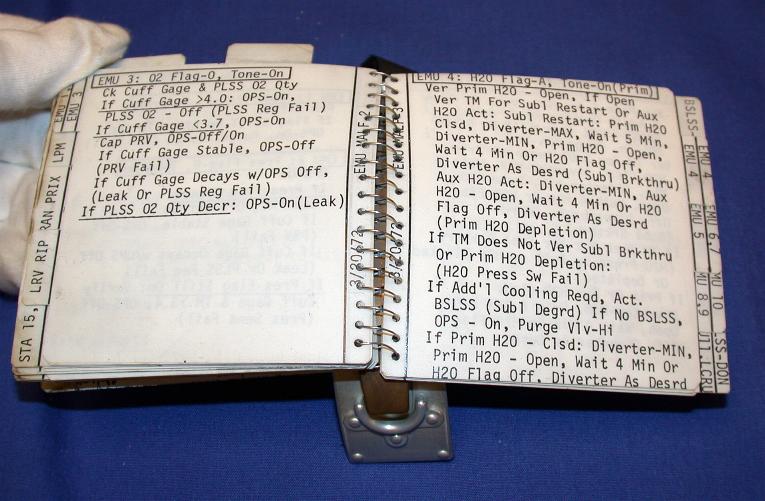 EMU 3: O2 Flag-O, Tone-On
Ck Cuff Gage & PLSS O2 Qty
If Cuff Gage >4.0: OPS-On,
PLSS O2 - Off (PLSS Reg Fail)
If Cuff Gage <3.7, OPS-On
Cap PRV, OPS-Off/On
If Cuff Gage Stable, OPS-Off
(PRV Fail)
If Cuff Gage Decays w/OPS Off,
(Leak Or PLSS Reg Fail)
If PLSS O2 Qty Decr: OPS-On(Leak)
EMU MALF-2
3/20/72
EMU 3
STA 15, LRV RIP RAN PRIX LPM
EMU 4: H2O Flag-A, Tone-On(Prim)
Ver Prim H2O - Open, If Open
Ver TM For Subl Restart Or Aux
H2O Act: Subl Restart: Prim H2O
Clsd, Diverter-MAX, Wait 5 Min,
Diverter-MIN, Prim H2O - Open,
Wait 4 Min Or H2O Flag Off,
Diverter As Desrd (Subl Brkthru)
Aux H2O Act: Diverter-MIN, Aux
H2O - Open, Wait 4 Min Or H2O
Flag Off, Diverter As Desrd
(Prim H2O Depletion)
If TM Does Not Ver Subl Brkthru
Or Prim H2O Depletion:
(H2O Press Sw Fail)
If Add'l Cooling Reqd, Act.
BSLSS (Subl Degrd) If No BSLSS,
OPS - On, Purge Vlv-Hi
If Prim H2O - Clsd: Diverter-MIN,
Prim H2O - Open, Wait 4 Min Or
H2O Flag Off, Diverter As Desrd
3/20/72
BSLSS- EMU 4 EMU 5
EMU 4 EMU 6,7 MU 8,9
MU 10
LSS-DON